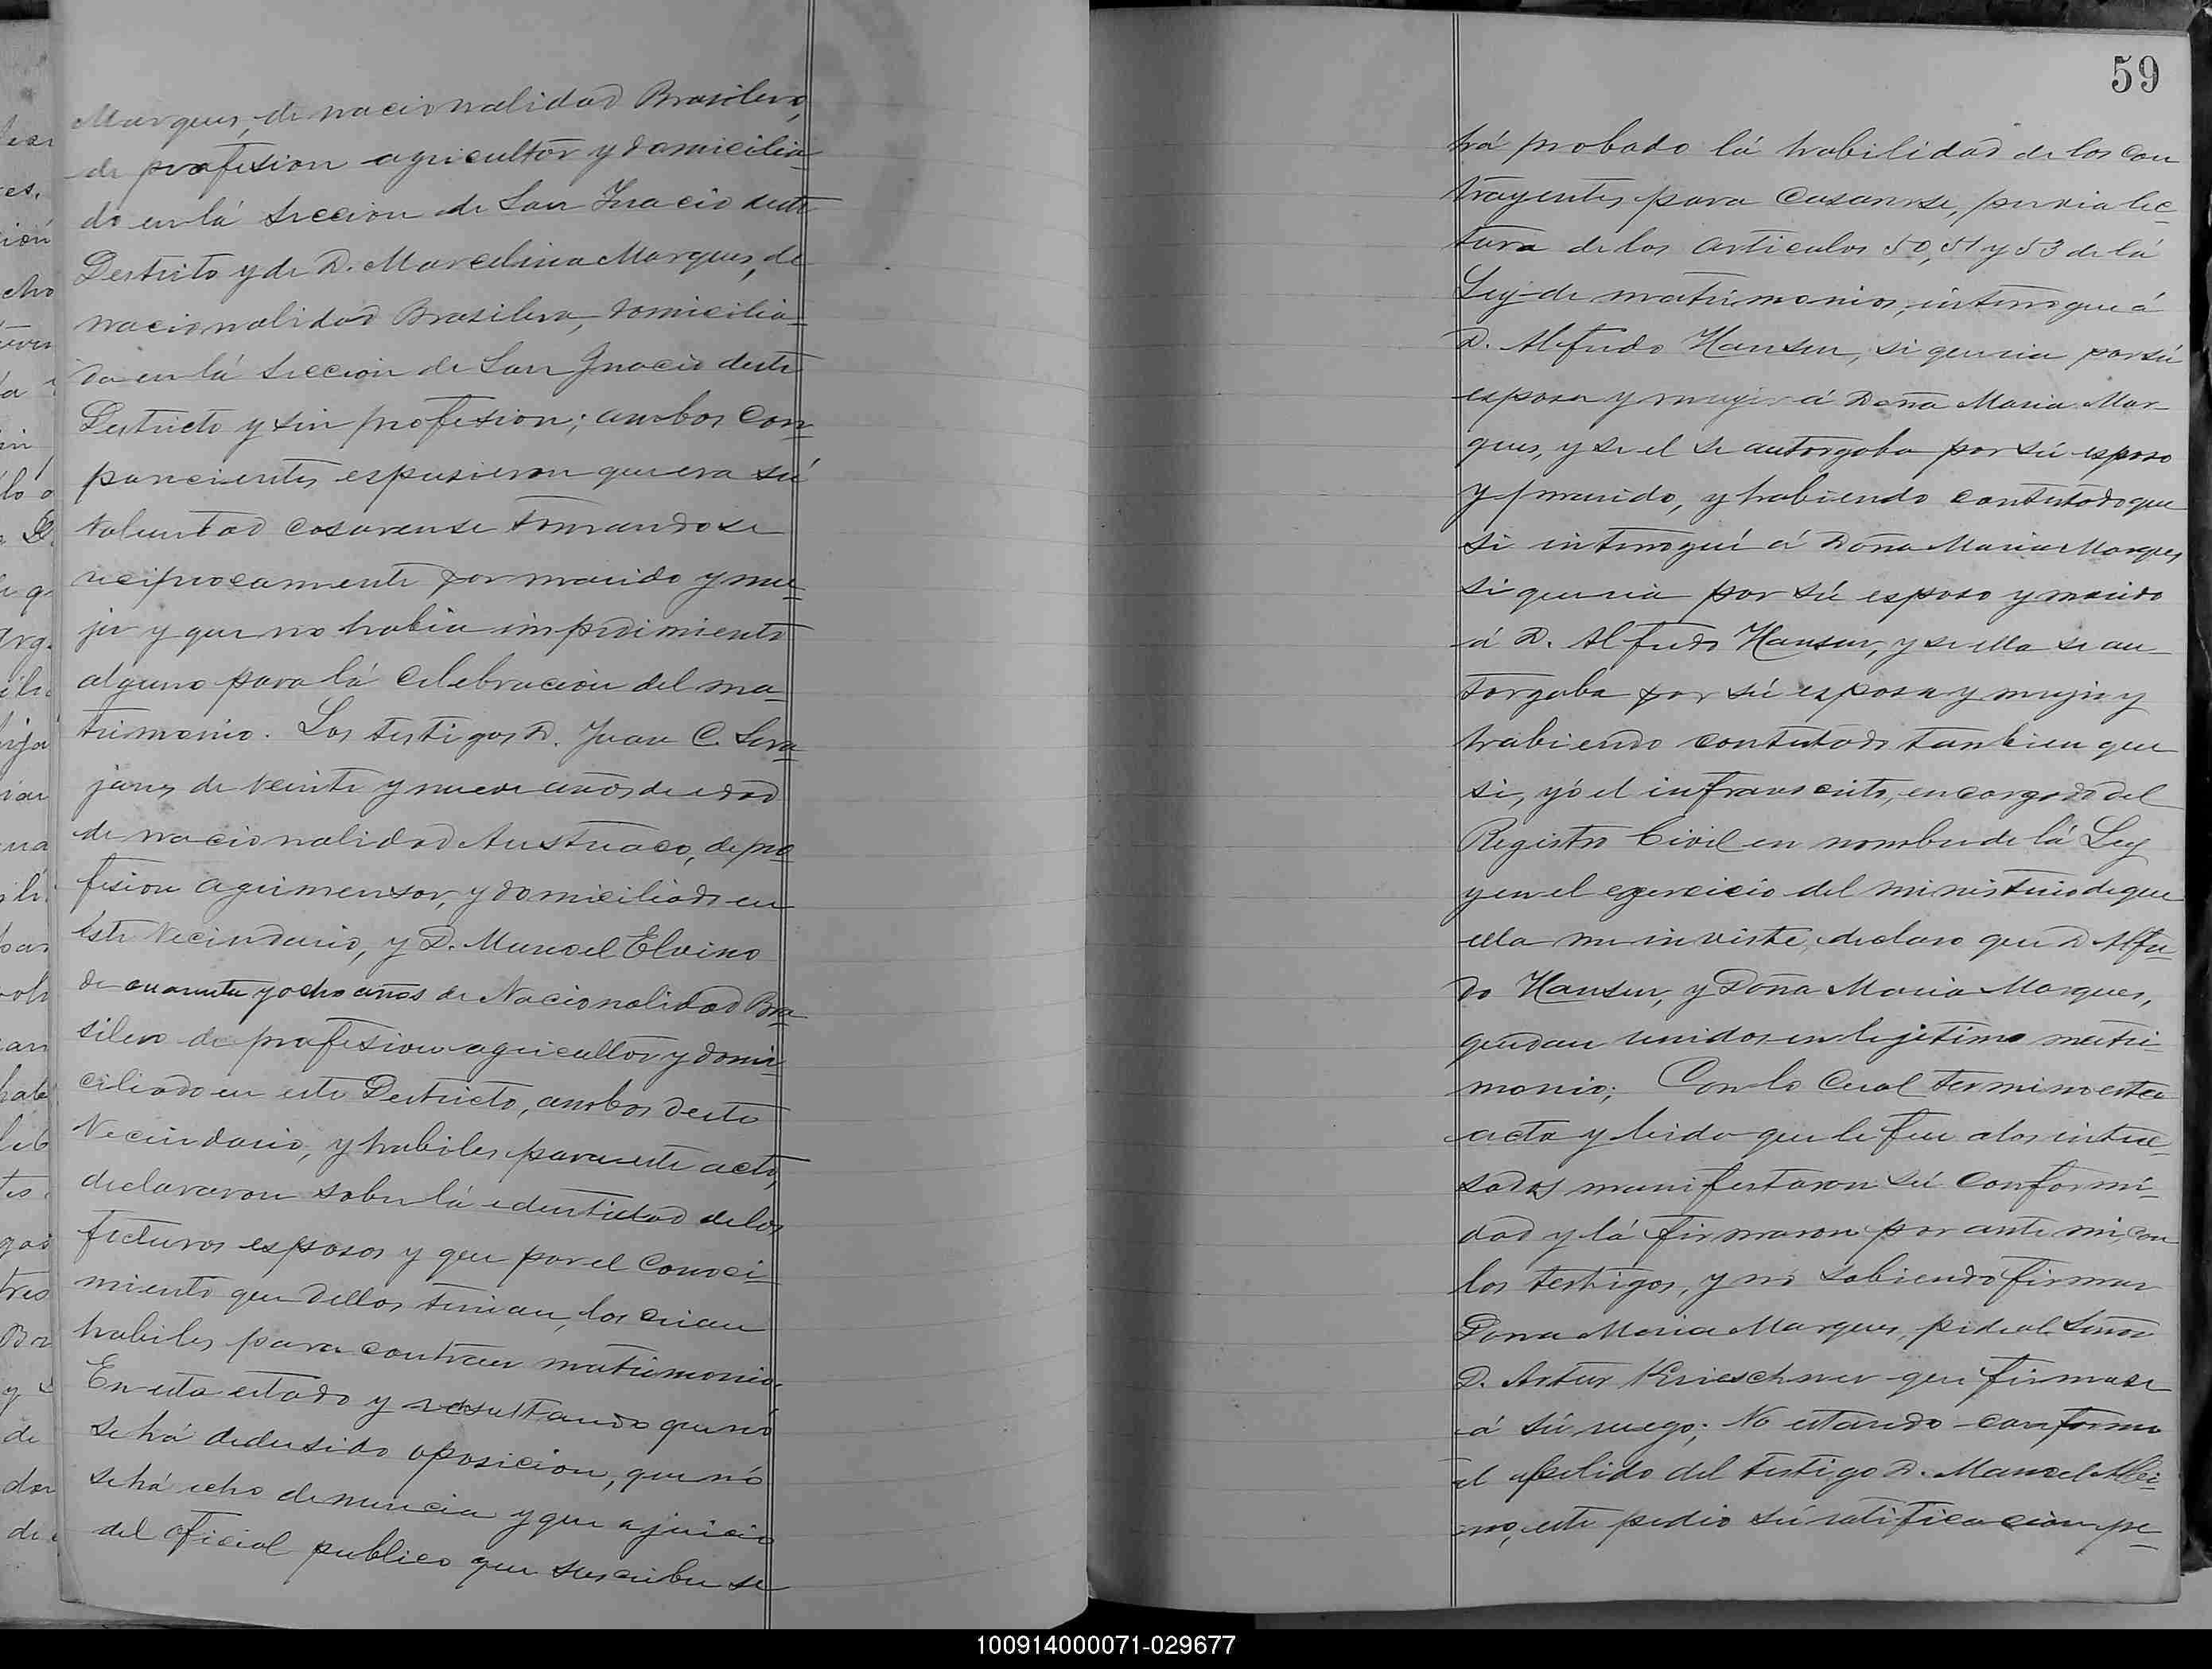 Marques, de nacionalidad Brasilero,
de profesion agricultor y domicilia-
do en lá Seccion de San Ynacio deste
Destricto y de D. Marcelina Marques, de
nacionalidad Brasilera, domicilia-
da en lá Seccion de San Ygnacio deste
Destricto y sin profesion; ambos Con-
parecientes espusieron que era sú
Voluntad casarense tomandose
reciprocamente por marido y mu-
jer y que no habia impedimiento
alguno para lá Celebracion del ma-
trimonio. Los testigos D. Juan C.
de veinte y nueve años de edad
de nacionalidad Austriaco, de pro
fesion agrimensor, y domiciliado en
Este Vecindario, y D. Manoel Elvino
de cuarenta y ocho años de Nacionalidad Bra-
silero de profesion agricultor y domi-
ciliado en este Destricto, ambos deste
Vecindario, y habiles para este acto,
declararon sober lá edentidad de los
futuros esposos y que por el Conoci-
miento que dellos tenian, los crian
habiles para contraer matrimonio.
En esta estado y resultando que nó
se há dedusido oposicion, que nó
se há echo denuncia y que a juicio
del oficial publico que suscribe se
59
há probado lá habilidad de los con
trayentes para Casarse, previa lec-
tura de los articulos 50, 51 y 53 de lá
Ley de matrimonios, interrogue á
D. Alfredo Hansen, si queria por sú
esposa y mujer á Doña Maria Mar-
ques, y se el se autorgaba por sú esposo
y marido, y habiendo contestado que
si interroguí á Doña Maria Marques
si queria por sú esposo y marido
á D. Alfredo Hansen, y se ella se au-
torgaba por sú esposa y mujer y
habiendo contestado tanbien que
si, yó el infranscrito, encargado del
Registro Civil en nombre de lá Ley
y en el egercicio del ministerio de que
ella me inviste, declaro que D. Alfre-
do Hansen, y Doña Maria Marques,
quedan unidos en lejetimo matri-
monio; Con lo Cual termino esta
acta y leida que le fue a los intere-
sados manifestaron sú Conformi-
dad y lá firmaron por ante mi, con
los testigos, y nó sabiendo firmar
Dona Maria Marques, pide al Señor
D. Artur Krieschner que firmase
á sú ruego; No estando conforme
el apelido del testigo D. Manoel Alvi-
no, este pedio sú ratificacion pe-
100914000071-029677